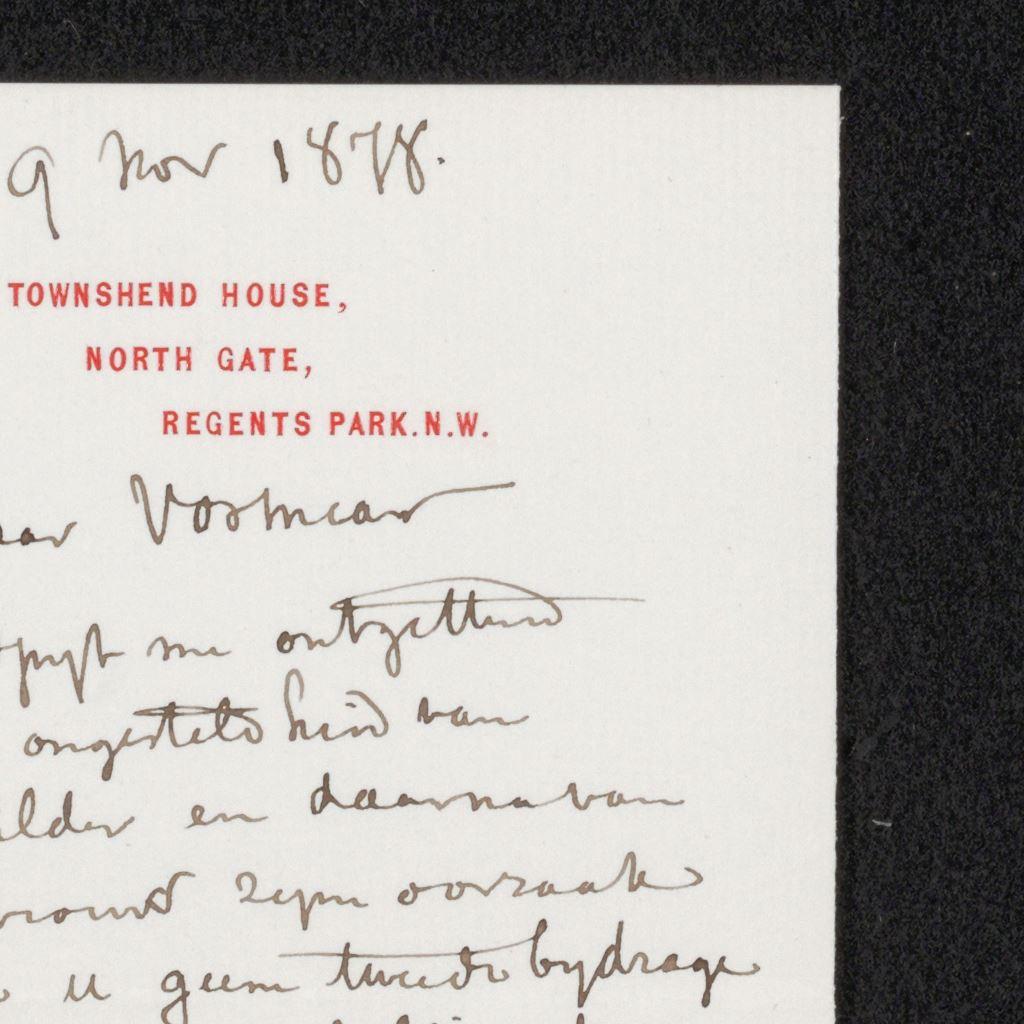 9 Nov 1878.
TOWNSHEND HOUSE,
NORTH GATE,
REGENTS PARK.N.W.
Vosmear
spyt me ontzettend
ongesteld heid van
en daarna van
zyn oorzaak
u geen tweede bydrage